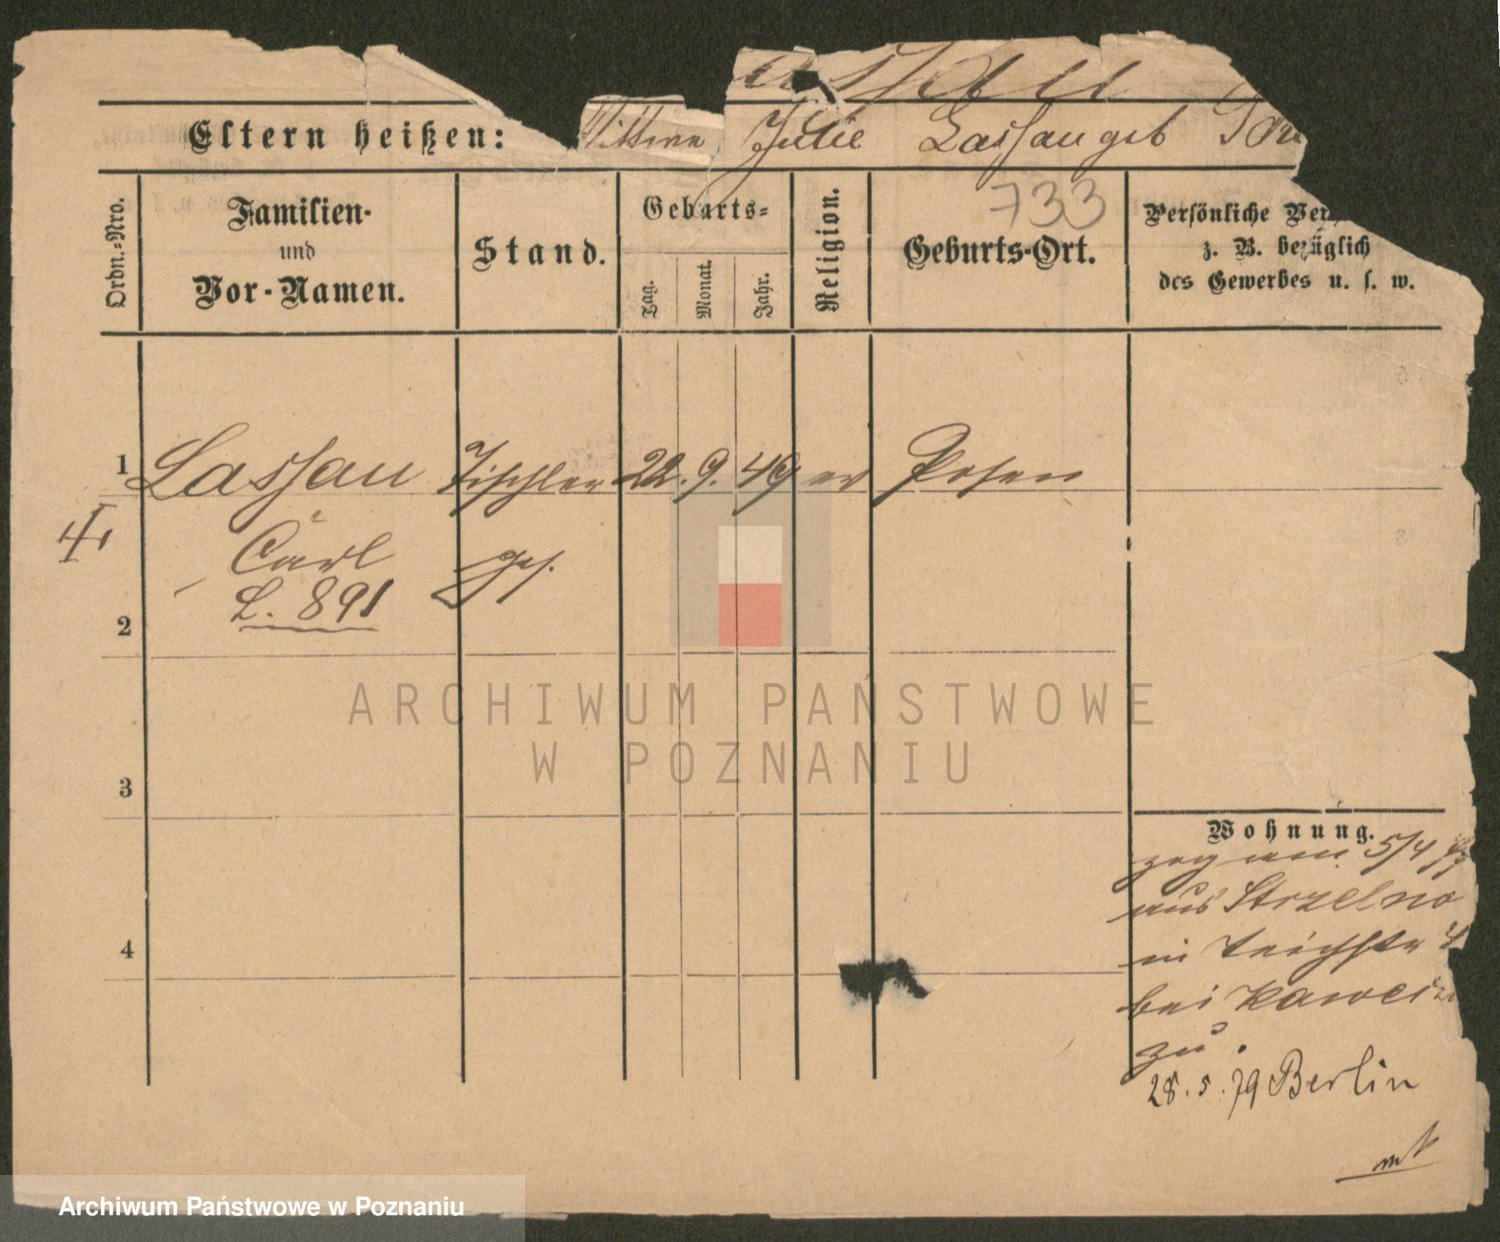 Eltern heißen: Wittwe Julie Lassau geb
733
Ordn.-Nro.
Familien-
und
Vor-Namen.
Stand.
Geburts-
Tag.
Monat.
Jahr.
Religion.
Geburts-Ort.
Persönliche
z. B. bezüglich
des Gewerbes u. s. w.
1 Lassau Tischler 22. 9. 49 ev Posen
Carl ges.
L. 891
2
3
4
Wohnung.
zog am 5/4
aus Strzelno
in
bei
zu.
28. 5. 79 Berlin
ARCHIWUM PAŃSTWOWE
W POZNANIU
Archiwum Państwowe w Poznaniu